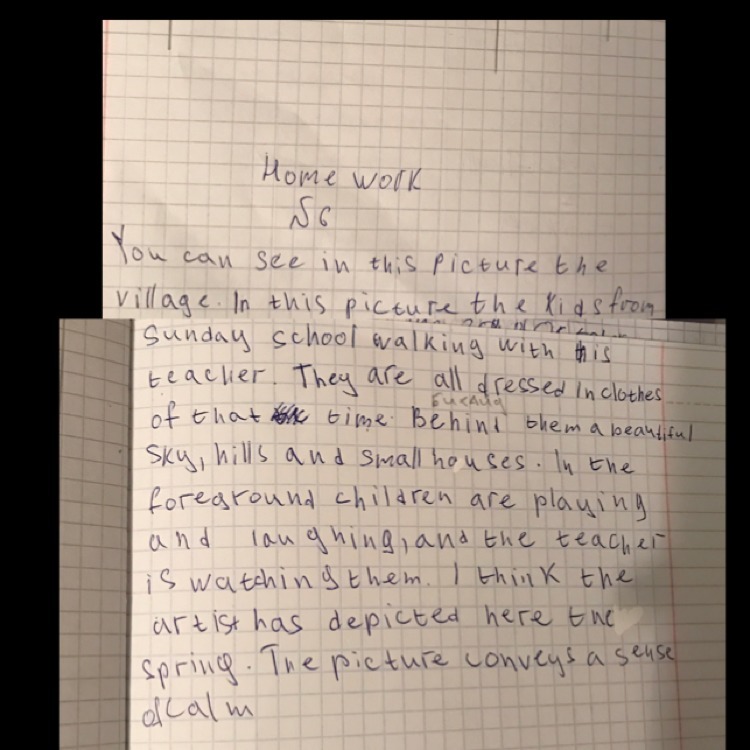 Home work
№6
You can see in this picture the
village. In this picture the kids from
Sunday school walking with his
teacher. They are all dressed in clothes
of that time. Behind them a beautiful
sky, hills and small houses. In the
foreground children are playing
and laughing, and the teacher
is watching them. I think the
artist has depicted here the
spring. The picture conveys a sense
of calm